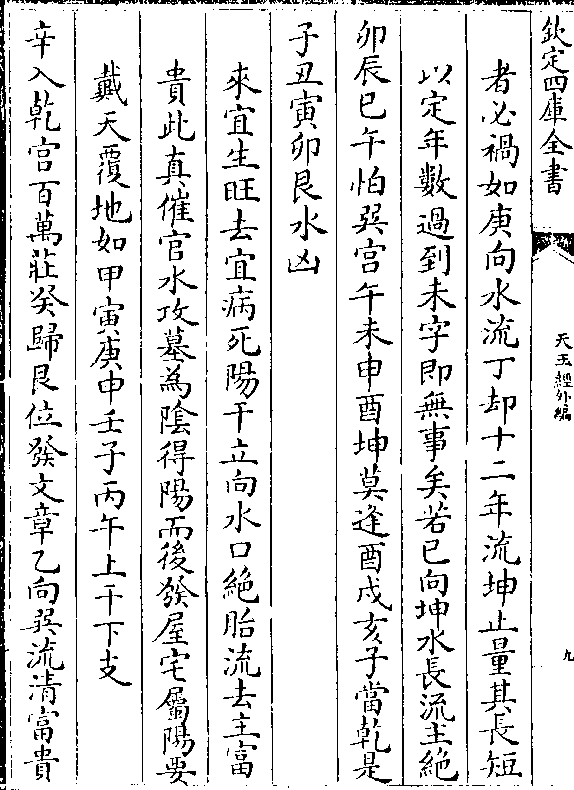 欽定四庫全書
天玉經外編
九
者必禍如庚向水流丁却十二年流坤止量其長短
以定年數過到未字即無事矣若已向坤水長流主絶
卯辰巳午怕巽宫午未申酉坤莫逢酉戌亥子當乾是
子丑寅卯艮水凶
來宜生旺去宜病死陽干立向水口絶胎流去主富
貴此真催官水攻墓為陰得陽而後發屋宅屬陽要
戴天覆地如甲寅庚申壬子丙午上干下支
辛入乾宫百萬莊癸歸艮位發文章乙向巽流清富貴